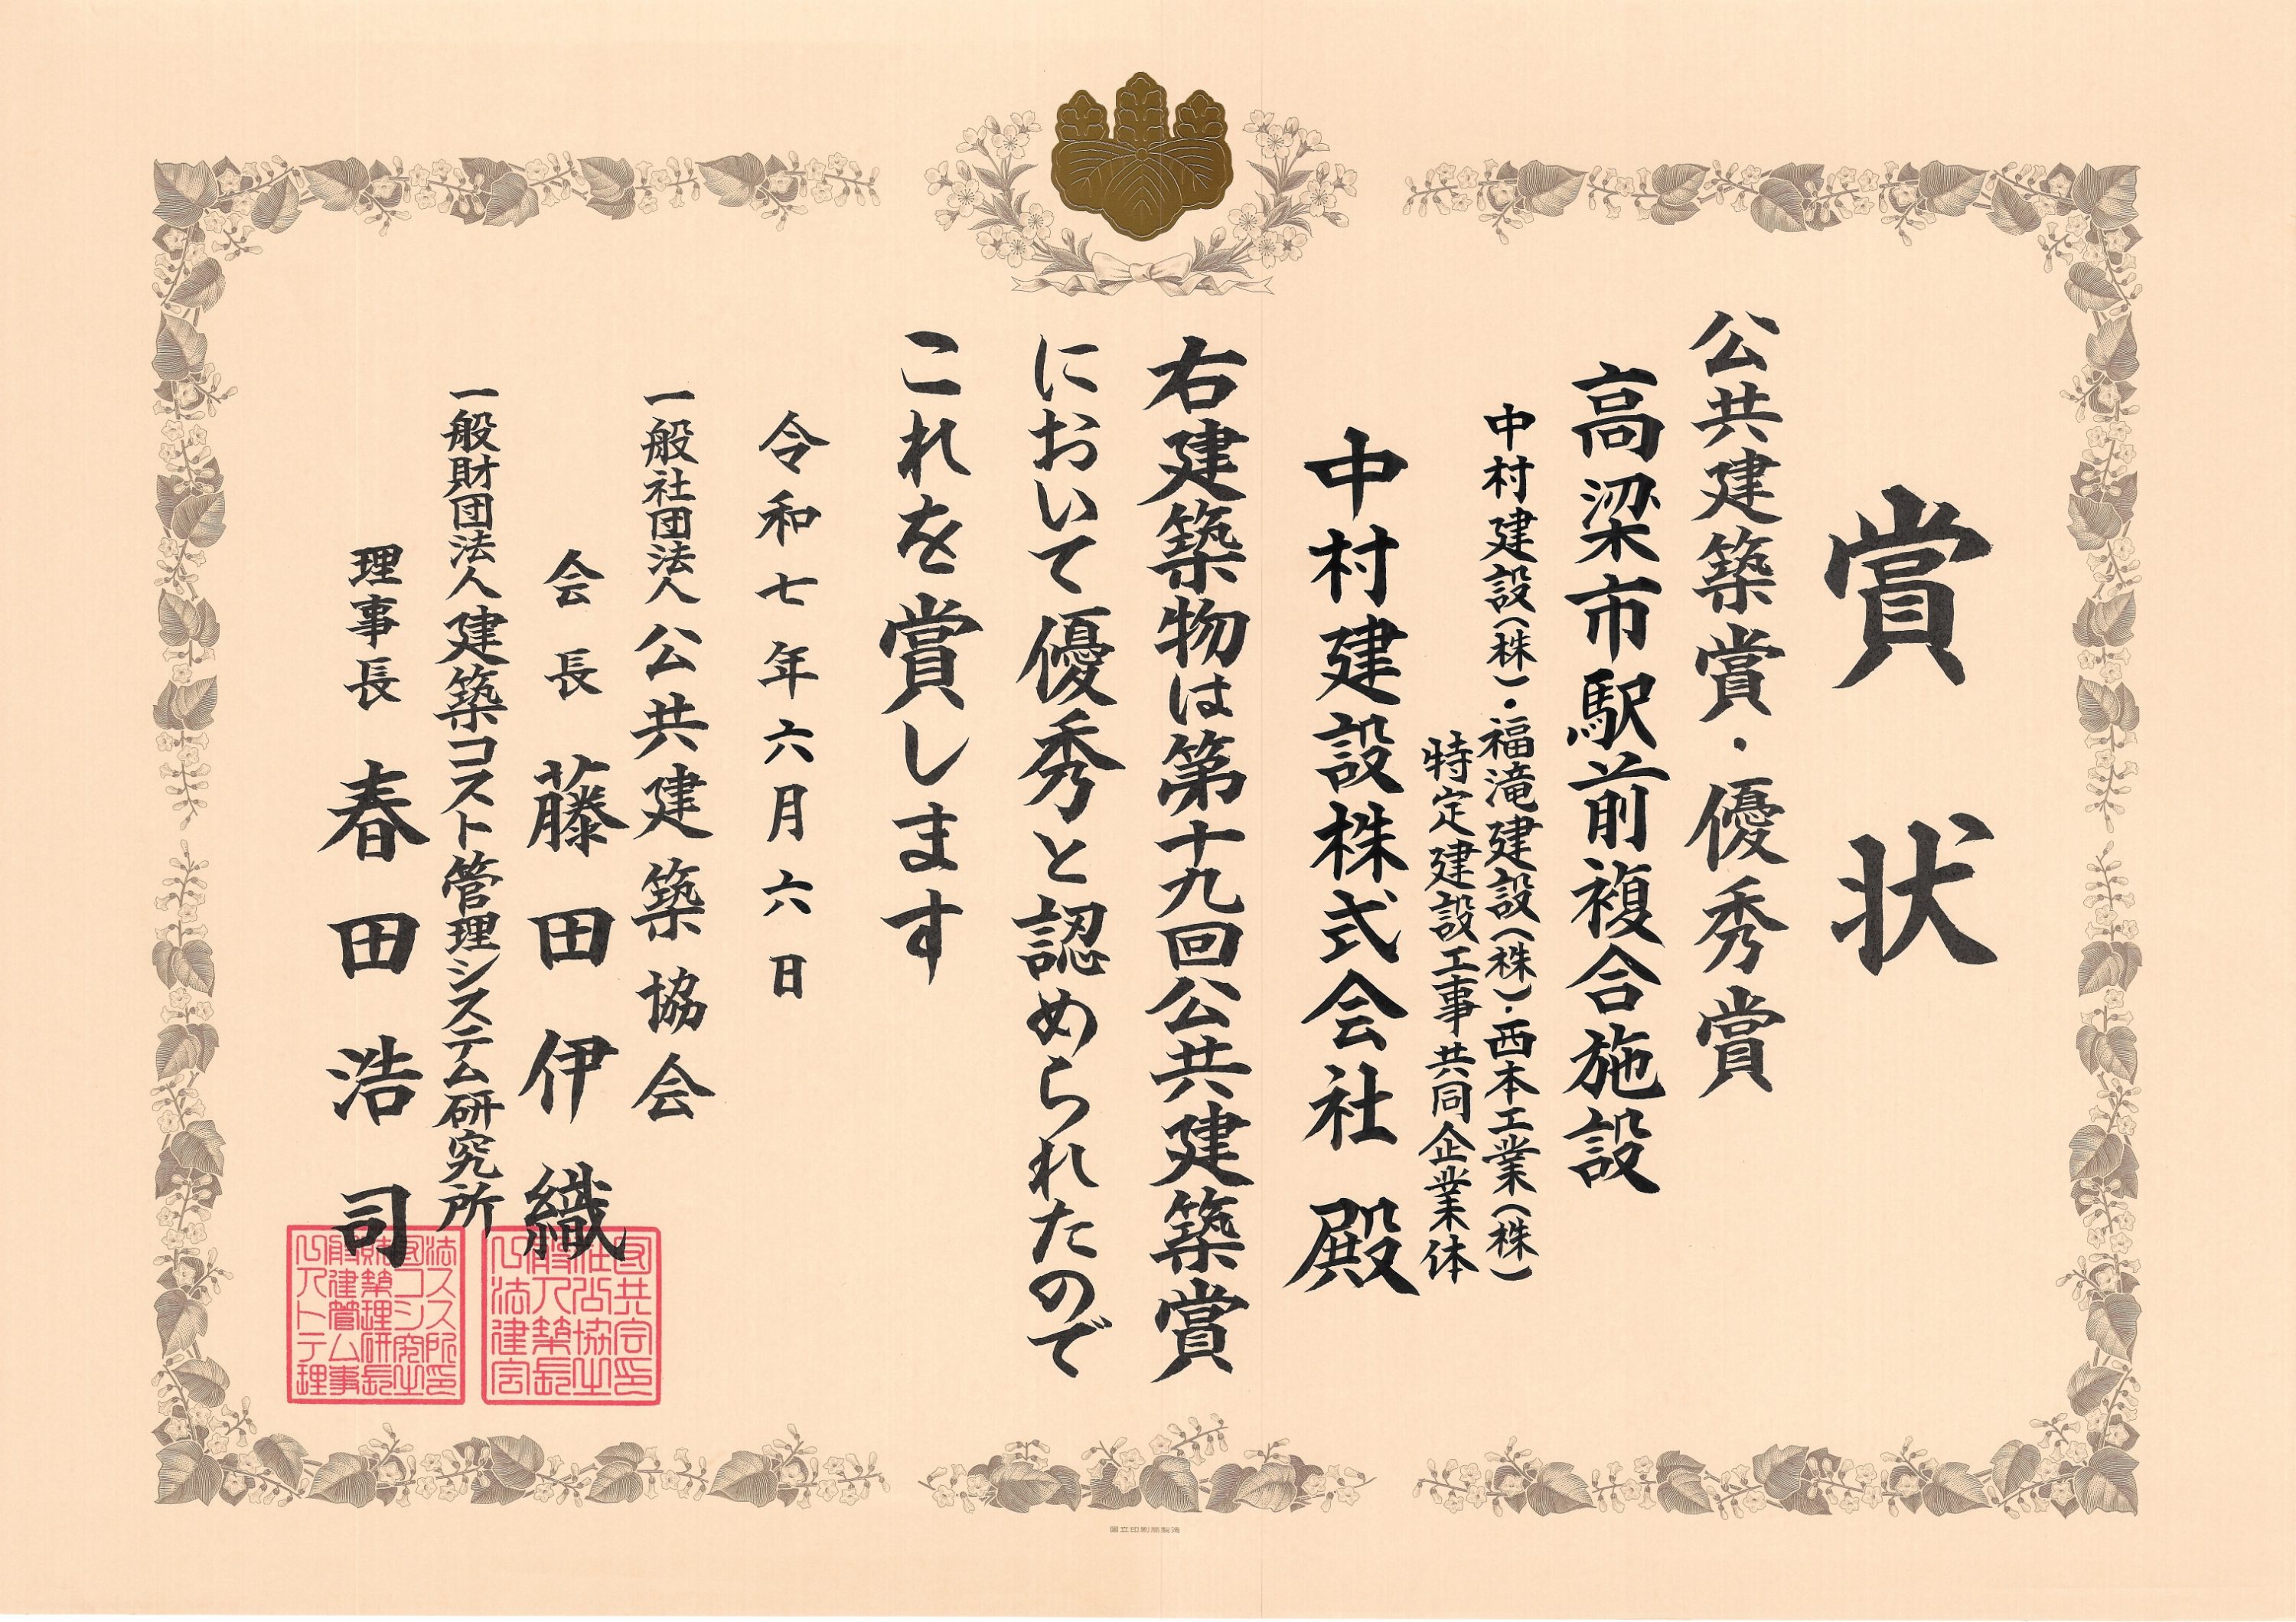 賞状
公共建築賞・優秀賞
高梁市駅前複合施設
中村建設(株)・福滝建設(株)・西本工業(株)
特定建設工事共同企業体
中村建設株式会社 殿
右建築物は第十九回公共建築賞
において優秀と認められたので
これを賞します
令和七年六月六日
一般社団法人 公共建築協会
会長 藤田伊織
一般財団法人 建築コスト管理システム研究所
理事長 春田浩司